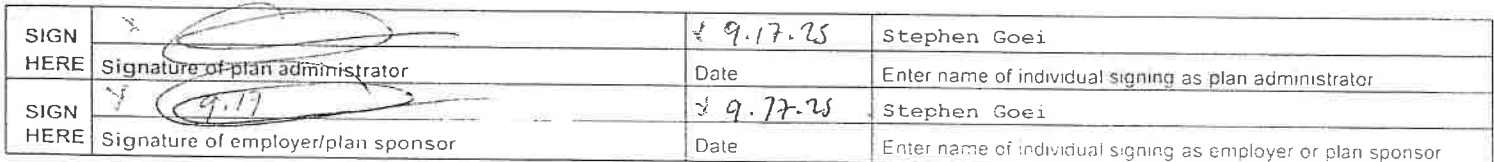 SIGN HERE
9.17.25
Stephen Goei
Signature of plan administrator
Date
Enter name of individual signing as plan administrator
SIGN HERE
9.17
9.17.25
Stephen Goei
Signature of employer/plan sponsor
Date
Enter name of individual signing as employer or plan sponsor